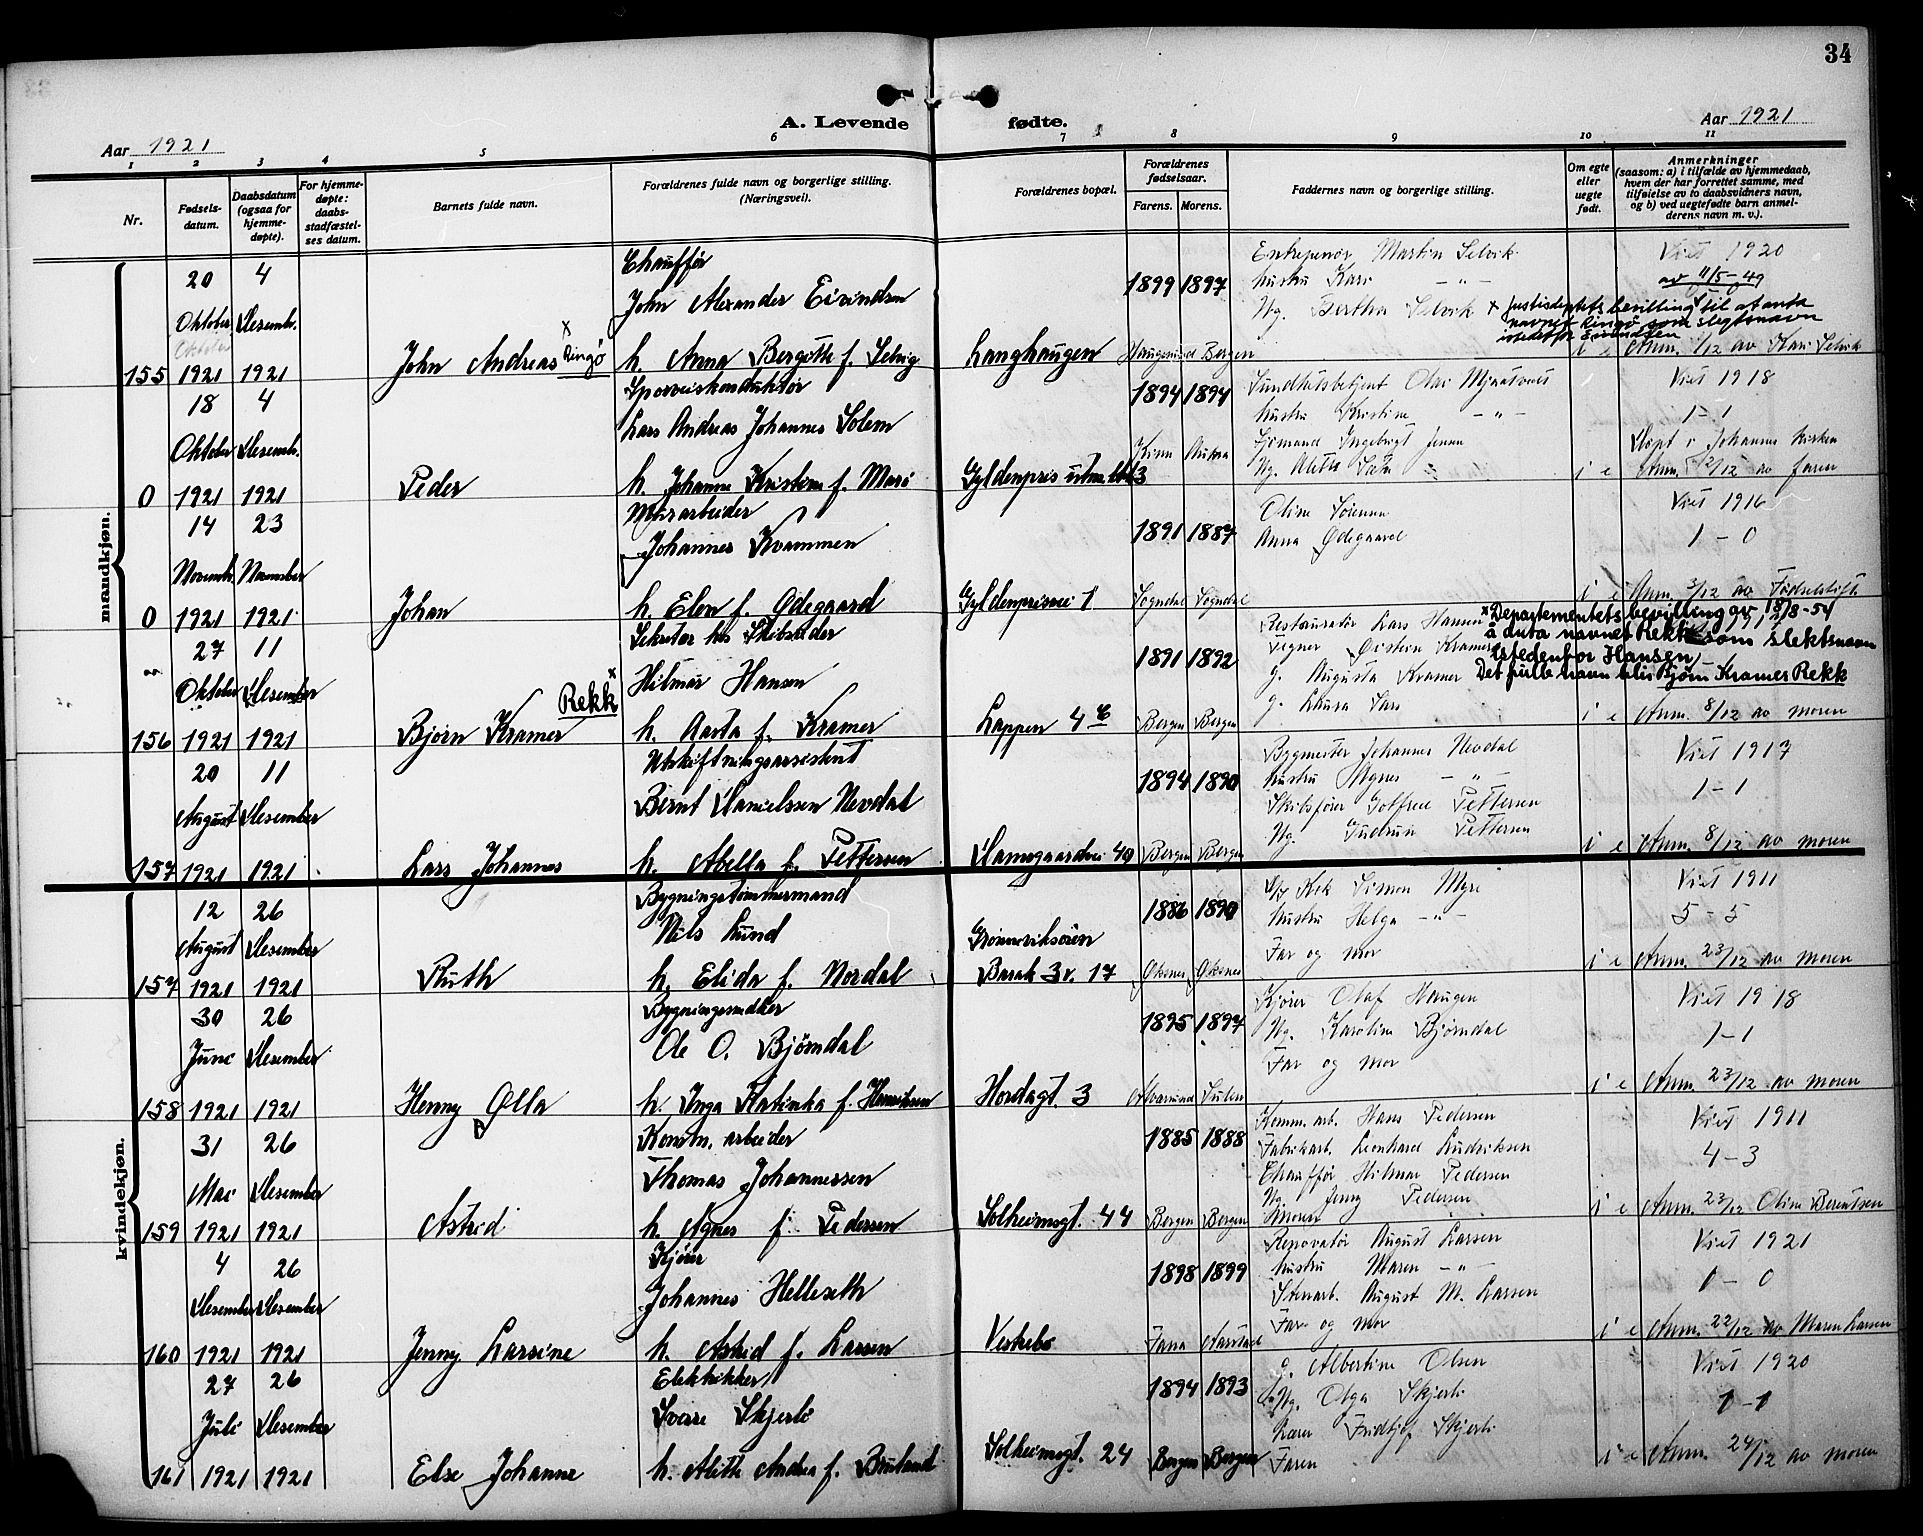 34
A. Levende fødte.
Aar 1921
Aar 1921
1 2 3 4 5 6 7 8 9 10 11
Nr.
Fødselsdatum.
Daabsdatum (ogsaa for hjemmedøpte).
For hjemmedøpte: daabsstadfæstelses datum.
Barnets fulde navn.
Forældrenes fulde navn og borgerlige stilling. (Næringsvei).
Forældrenes bopæl.
Forældrenes fødselsaar.
Farens. Morens.
Faddernes navn og borgerlige stilling.
Om egte eller uegte født.
Anmerkninger
(saasom: a) i tilfælde av hjemmedaab,
hvem der har forrettet samme, med
tilføielse av to daabsvidners navn,
og b) ved uegtefødte barn anmelderens navn m. v.).
mandkjøn.
155
20 Oktober 1921
4 Desemb. 1921
John Andreas x Ringø
Chauffør
John Alexander Eivindsen
h. Anna Bergitte f. Selvig
Langhaugen
1899 1897
Haugesund Bergen
Entrepenør Martin Selvik
hustru Kari - " -
Ug. Bertha Selvik
i e
Viet 1920
av 11/5-49
x Justisdeptets bevilling til at anta
navnet Ringø som slegtsnavn
istedetfor Eivindsen
Anm. 1/12 av Kari Selvik
0
18 Oktober 1921
4 Desemb. 1921
Peder
Sporveiskonduktør
Lars Andreas Johannes Solem
h. Johanne Kristine f. Marø
Gyldenpris
1894 1894
Kinn Aukra
Sundhetsbetjent Olai Mjaatvedt
hustru Kristine - " -
Sjømand Ingebrigt Jensen
i e
Viet 1918
1-1
Døpt i Johannes kirken
Anm. /12 av faren
0
14 Novemb. 1921
23 November 1921
Johan
Murarbeider
Johannes Kvammen
h. Elen f. Ødegaard
Gyldenprisvei 1
1891 1887
Sogndal Sogndal
Oline Solemn
Anna Ødegaard
i e
Viet 1916
1-0
Anm. 3/12 av Fødselstift.
156
27 Oktober 1921
11 Desember 1921
Bjørn Kramer Rekk x
Sekretær hos Skibsreder
Hilmar Hansen
h. Aasta f. Kramer
Lappen 4 c
1891 1892
Bergen Bergen
Restauratør Lars Hansen
Tegner Øistein Kramer
g. Augusta Kramer
g. Laura Lars
i e
x Departementets bevilling av 18/8-54
å anta navnet Rekk som slektsnavn
istedenfor Hansen
Det fulle navn blir Bjørn Kramer Rekk
Anm. 8/12 av moren
157
20 August 1921
11 Desember 1921
Lars Johannes
Utskiftningsassistent
Bernt Danielssen Nevdal
h. Abella f. Pettersen
Damsgaardsvei 40
1894 1890
Bergen Bergen
Bygmester Johannes Nevdal
hustru Agnes - " -
Skibsfører Gotfred Pettersen
Ug. Gudrun Pettersen
i e
Viet 1917
1-1
Anm. 8/12 av moren
kvindekjøn.
157
12 August 1921
26 Desember 1921
Ruth
Bygningstømmermand
Nils Lund
h. Elida f. Nordal
Grønneviksøren
Barak 3 v. 17
1886 1890
Øksnes Øksnes
Simon Myre
hustru Helga - " -
Far og mor
i e
Viet 1911
5-5
Anm. 23/12 av moren
158
30 Juni 1921
26 Desember 1921
Henny Olla
Bygningssnekker
Ole O. Bjørndal
h. Inga Katinka f. Henriksen
Hordagt. 3
1895 1897
Alversund Sulen
Kjører Olaf Haugen
Ug. Karoline Bjørndal
Far og mor
i e
Viet 1918
1-1
Anm. 23/12 av moren
159
31 Mai 1921
26 Desember 1921
Astrid
Komm. arbeider
Thomas Johannessen
h. Agnes f. Pedersen
Solheimsgt. 44
1885 1888
Bergen Bergen
Komm. arb. Hans Pedersen
Fabrikarb. Leonhard Ludviksen
Chauffør Hilmar Pedersen
Ug. Jenny Pedersen
Moren
i e
Viet 1911
4-3
Anm. 23/12 Oline Berentsen
160
4 Desember 1921
26 Desember 1921
Jenny Larsine
Kjører
Johannes Helleseth
h. Astrid f. Larsen
Vestebø
1898 1899
Fana Aarstad
Renovatør August Larsen
hustru Maren - " -
Stenarb. August M. Larsen
Far og mor
i e
Viet 1921
0-0
Anm. 22/12 av Maren Larsen
161
27 Juli 1921
26 Desember 1921
Else Johanne
Elektriker
Sverre Skjerli
h. Alette Andrea f. Bruland
Solheimsgt. 24
1894 1893
Bergen Bergen
g. Albertine Olsen
Ug. Olga Skjerli
Lærer Fridtjof Skjerli
Faren
i e
Viet 1920
1-1
Anm. 24/12 av moren